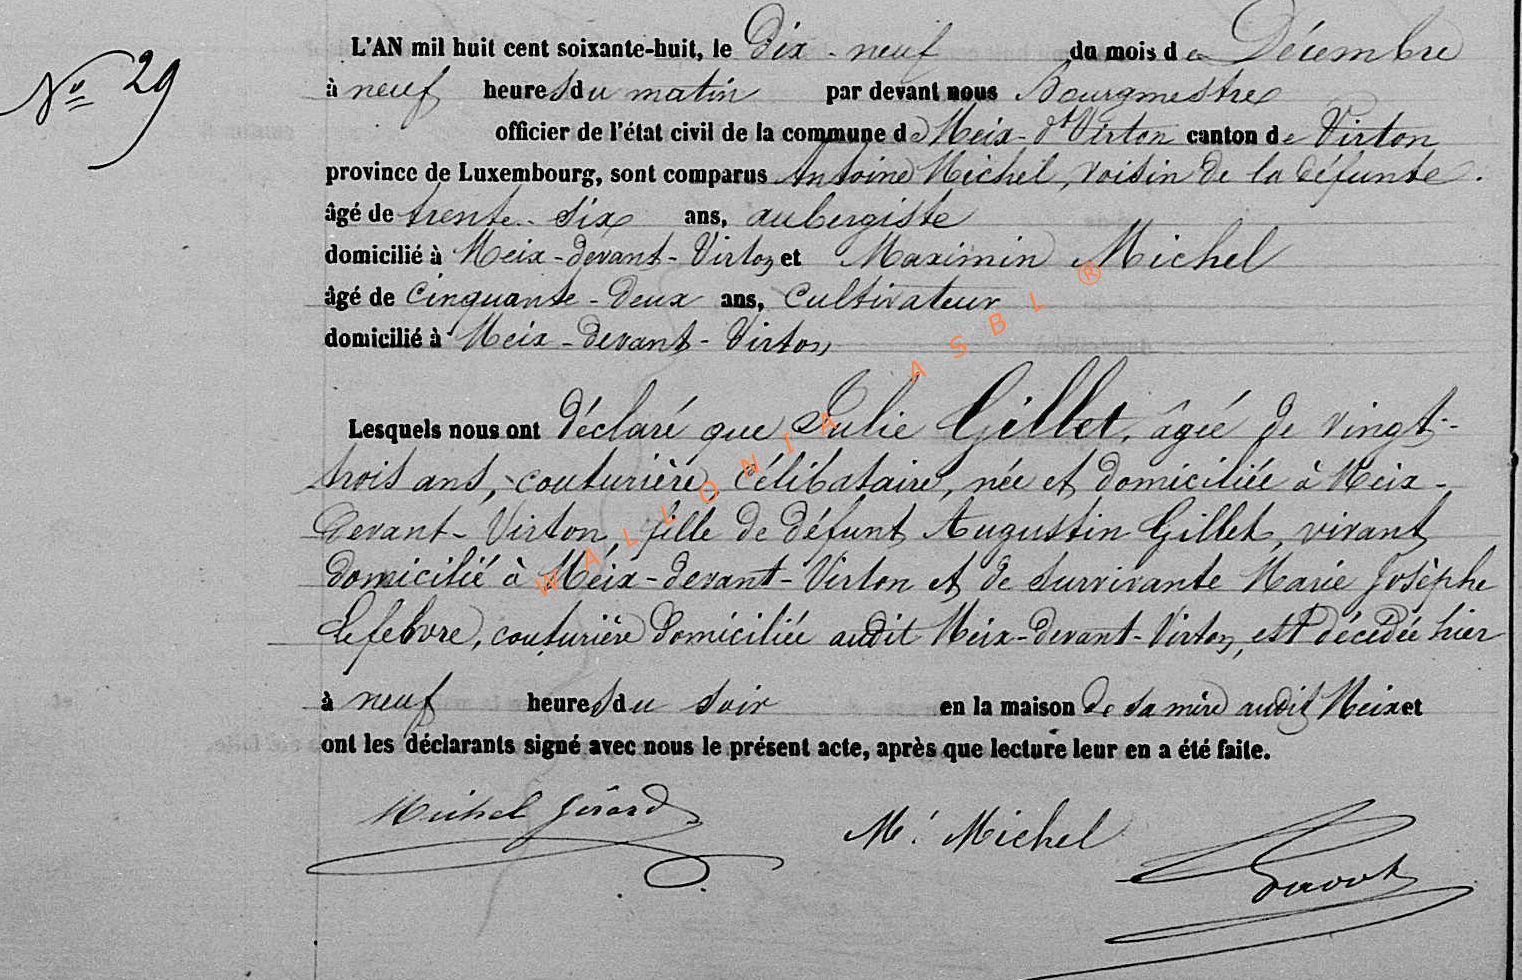 Nº 29
L'AN mil huit cent soixante-huit, le Dix-neuf du mois de Décembre
à neuf heures du matin par devant nous Bourgmestre
officier de l'état civil de la commune de Meix-dt Virton canton de Virton
province de Luxembourg, sont comparus Antoine Michel, voisin de la défunte.
âgé de trente-six ans, aubergiste
domicilié à Meix-devant-Virton et Maximin Michel
âgé de Cinquante-deux ans, Cultivateur
domicilié à Meix-devant-Virton
Lesquels nous ont déclaré que Julie Gillet, âgée de vingt-
trois ans, couturière, célibataire, née et domiciliée à Meix-
devant-Virton, fille de défunt Augustin Gillet, vivant
domicilié à Meix-devant-Virton et de survivante Marie Josèphe
Lefebvre, couturière domiciliée audit Meix-devant-Virton, est décédée hier
à neuf heures du soir en la maison de sa mère audit Meix et
ont les déclarants signé avec nous le présent acte, après que lecture leur en a été faite.
Michel Gérard
M. Michel
WALLONIA ASBL ®